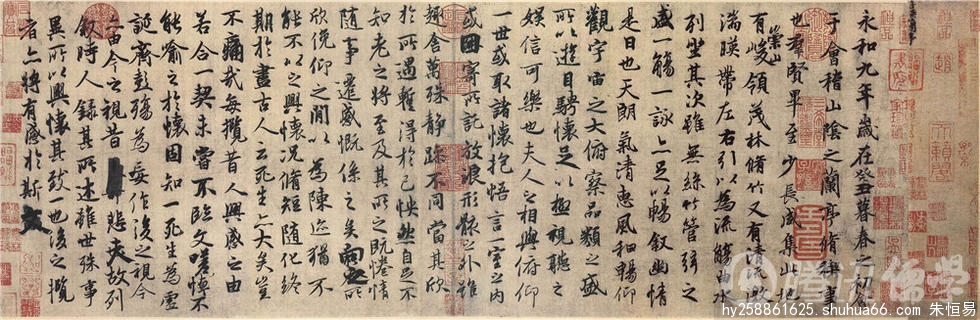 永和九年歲在癸丑暮春之初會
于會稽山陰之蘭亭脩禊事
也羣賢畢至少長咸集此地
有崇山峻領茂林脩竹又有清流激
湍暎帶左右引以為流觴曲水
列坐其次雖無絲竹管弦之
盛一觴一詠亦足以暢叙幽情
是日也天朗氣清惠風和暢仰
觀宇宙之大俯察品類之盛
所以遊目騁懷足以極視聽之
娛信可樂也夫人之相與俯仰
一世或取諸懷抱悟言一室之內
或因寄所託放浪形骸之外雖
趣舍萬殊靜躁不同當其欣
於所遇暫得於己怏然自足不
知老之將至及其所之既惓情
隨事遷感慨係之矣向之所
欣俛仰之閒以為陳迹猶不
能不以之興懷況脩短隨化終
期於盡古人云死生亦大矣豈
不痛哉每攬昔人興感之由
若合一契未嘗不臨文嗟悼不
能喻之於懷固知一死生為虛
誕齊彭殤為妄作後之視今
亦由今之視昔悲夫故列
叙時人錄其所述雖世殊事
異所以興懷其致一也後之攬
者亦將有感於斯文
hy258861625.shuhua66.com 朱恒易